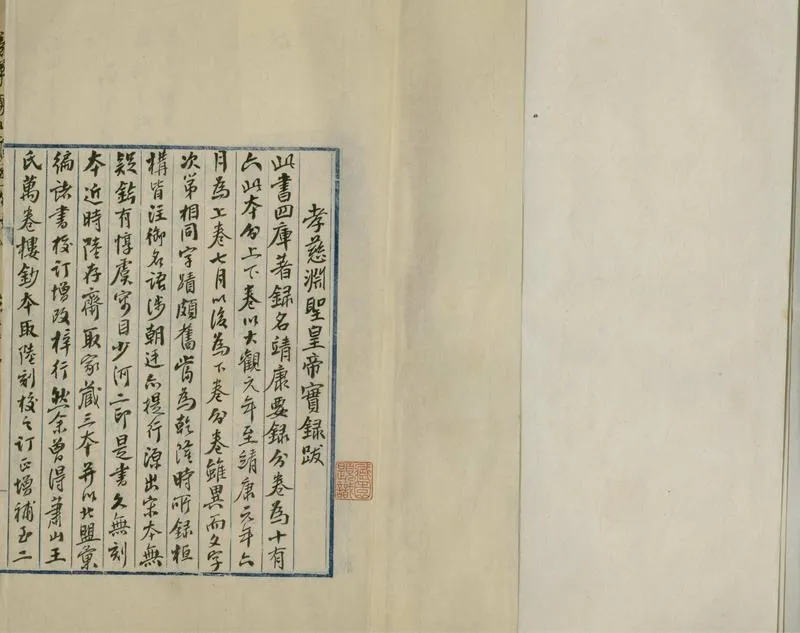 孝慈淵聖皇帝實錄跋
此書四庫著録名靖康要録分卷為十有
六此本分上下卷以大觀元年至靖康元年六
月為上卷七月以後為下卷分卷雖異而文字
次第相同字蹟頗舊當為乾隆時所録桓
構皆注御名語涉朝廷亦提行源出宋本無
疑鈐有惇虞寓目少河二印是書久無刻
本近時陸存齋取家藏三本并以北盟彙
編諸書挍訂增改梓行然余曾得蕭山王
氏萬卷樓鈔本取陸刻挍之訂正增補至二